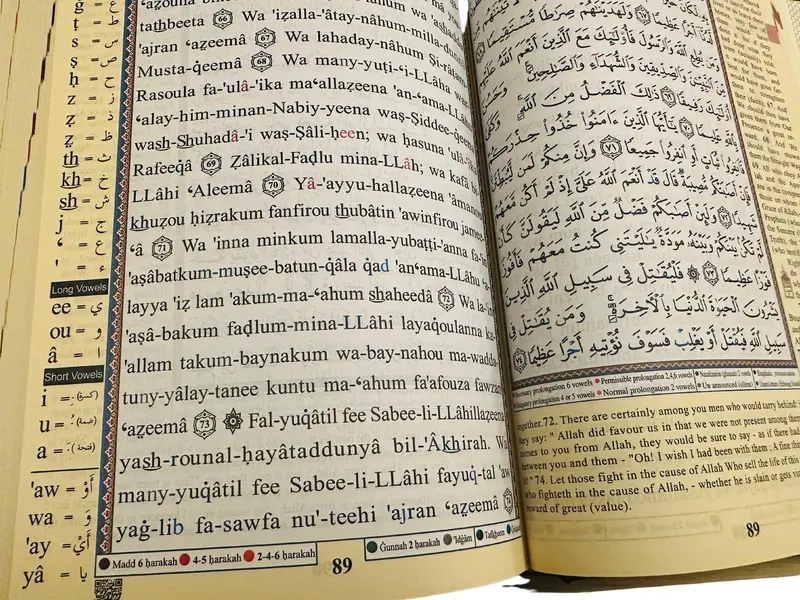 ṭ = ط
s = س
ṣ = ص
ḥ = ح
z = ز
ẓ = ظ
th = ث
kh = خ
sh = ش
j = ج
‘ = ع
' = ء
Long Vowels
ee = ي
ou = و
â = ا
Short Vowels
i = (كسرة)
u = (ضمة)
a = (فتحة)
'aw = أَوْ
wa = وَ
'ay = أَيْ
yâ = يا
tathbeeta 66 Wa 'iẓalla-'âtay-nâhum-milla-
'ajran ‘aẓeemâ 67 Wa lahaday-nâhum Ṣi-râṭam-
Musta-q̇eemâ 68 Wa many-yuṭi-‘i-LLâha war-
Rasoula fa-'ulâ-'ika ma‘allaẓeena 'an-‘ama-LLâhu
‘alay-him-minan-Nabiy-yeena waṣ-Ṣiddee-q̇eena
wash-Shuhadâ-'i waṣ-Ṣâli-ḥeen; wa ḥasuna 'ulâ-'ika
Rafeeq̇â 69 Ẓâlikal-Faḍlu mina-LLâh; wa kafâ bi-
LLâhi ‘Aleemâ 70 Yâ-'ayyu-hallaẓeena 'âmanou
khuẓou ḥiẓrakum fanfirou thubâtin 'awinfirou jamee-
‘â 71 Wa 'inna minkum lamalla-yubaṭṭi-'anna fa-'in
'aṣâbatkum-muṣee-batun-q̇âla q̇ad 'an‘ama-LLâhu ‘a-
layya 'iẓ lam 'akum-ma-‘ahum shaheedâ 72 Wa la-'in
'aṣâ-bakum faḍlum-mina-LLâhi layaq̇oulanna ka-
'allam takum-baynakum wa-bay-nahou ma-wadda-
tuny-yâlay-tanee kuntu ma-‘ahum fa'afouza fawzan
‘aẓeemâ 73 Fal-yuq̇âtil fee Sabee-li-LLâhillaẓeena
yash-rounal-ḥayâtaddunyâ bil-'Âkhirah. Wa
many-yuq̇âtil fee Sabee-li-LLâhi fayuq̇-tal 'aw
yaġ-lib fa-sawfa nu'-teehi 'ajran ‘aẓeemâ 74
Madd 6 ḥarakah 4-5 ḥarakah 2-4-6 ḥarakah
Ġunnah 2 ḥarakah 'Idġâm Tafkheem
89
أَجْرًا عَظِيمًا ۝ وَلَهَدَيْنَٰهُمْ صِرَٰطًا مُّسْتَقِيمًا
وَمَن يُطِعِ اللَّهَ وَالرَّسُولَ فَأُولَٰٓئِكَ مَعَ الَّذِينَ أَنْعَمَ اللَّهُ عَلَيْهِم
مِّنَ النَّبِيِّـۧنَ وَالصِّدِّيقِينَ وَالشُّهَدَآءِ وَالصَّٰلِحِينَ وَحَسُنَ
أُولَٰٓئِكَ رَفِيقًا ۝ ذَٰلِكَ الْفَضْلُ مِنَ اللَّهِ وَكَفَىٰ
بِاللَّهِ عَلِيمًا ۝ يَٰٓأَيُّهَا الَّذِينَ ءَامَنُوا خُذُوا حِذْرَكُمْ
فَانفِرُوا ثُبَاتٍ أَوِ انفِرُوا جَمِيعًا ۝ وَإِنَّ مِنكُمْ لَمَن لَّيُبَطِّئَنَّ
فَإِنْ أَصَٰبَتْكُم مُّصِيبَةٌ قَالَ قَدْ أَنْعَمَ اللَّهُ عَلَىَّ إِذْ لَمْ أَكُن مَّعَهُمْ
شَهِيدًا ۝ وَلَئِنْ أَصَٰبَكُمْ فَضْلٌ مِّنَ اللَّهِ لَيَقُولَنَّ كَأَن
لَّمْ تَكُنۢ بَيْنَكُمْ وَبَيْنَهُۥ مَوَدَّةٌ يَٰلَيْتَنِى كُنتُ مَعَهُمْ فَأَفُوزَ
فَوْزًا عَظِيمًا ۝ فَلْيُقَٰتِلْ فِى سَبِيلِ اللَّهِ الَّذِينَ
يَشْرُونَ الْحَيَوٰةَ الدُّنْيَا بِالْءَاخِرَةِ وَمَن يُقَٰتِلْ فِى
سَبِيلِ اللَّهِ فَيُقْتَلْ أَوْ يَغْلِبْ فَسَوْفَ نُؤْتِيهِ أَجْرًا عَظِيمًا ۝
Necessary prolongation 6 vowels Permissible prolongation 2,4,6 vowels
Obligatory prolongation 4 or 5 vowels Normal prolongation 2 vowels Un announced (silent)
together.72. There are certainly among you men who would tarry behind: If
they say: " Allah did favour us in that we were not present among them
comes to you from Allah, they would be sure to say - as if there had
between you and them - "Oh! I wish I had been with them ; A fine thing
* 74. Let those fight in the cause of Allah Who sell the life of this
who fighteth in the cause of Allah, - whether he is slain or gets
reward of great (value).
89